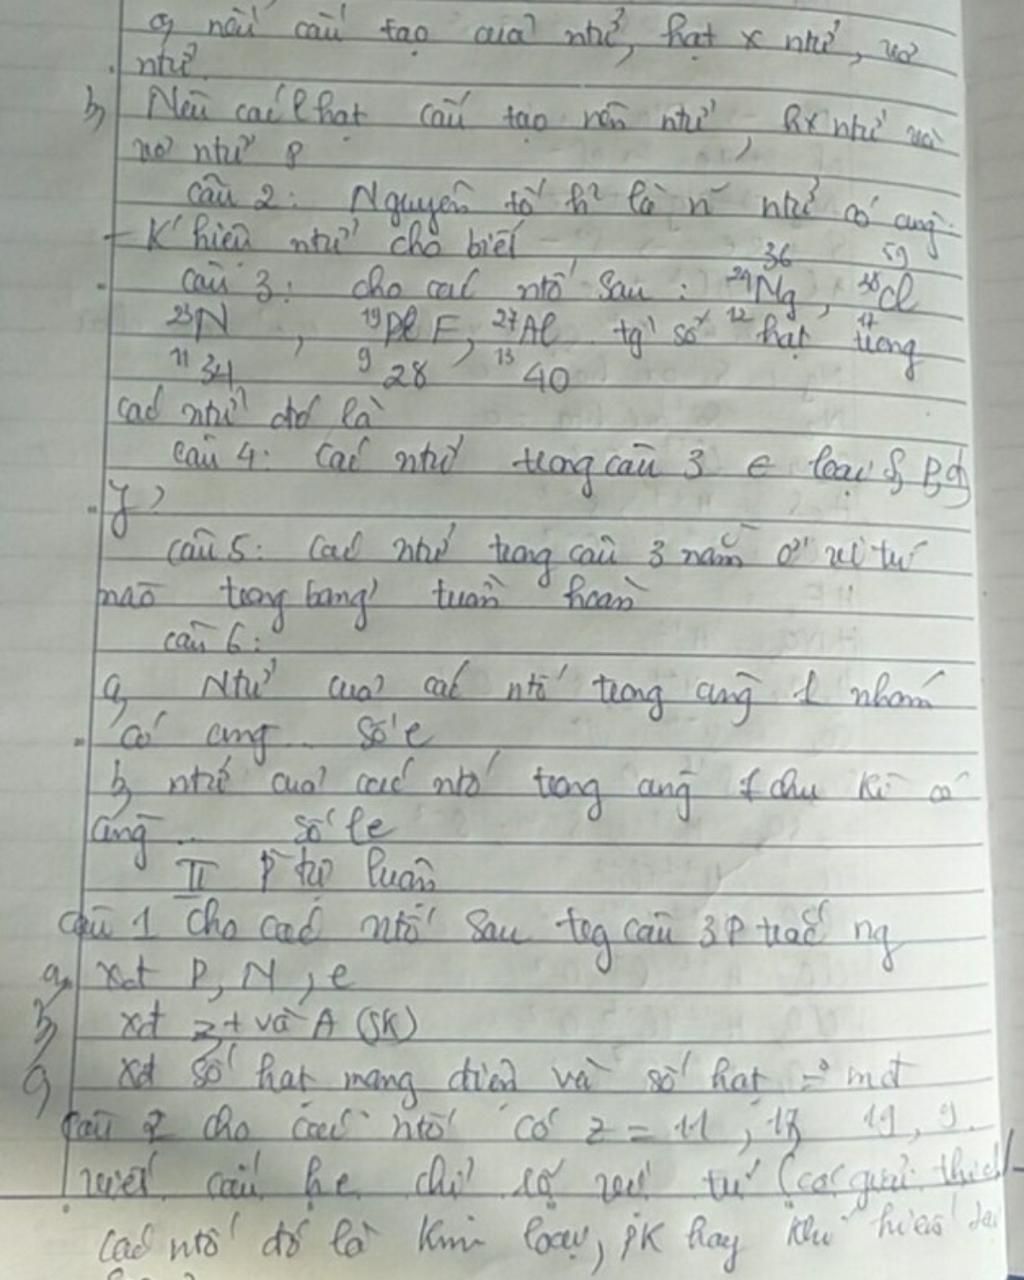 a, nêu cấu tạo của ntử, hạt x ntử, vỏ
ntử
b, Nêu các hạt cấu tạo nên ntử, hx ntử và
vỏ ntử
câu 2: Nguyên tố h² là n~ ntử có cùng
- K hiệu ntử cho biết
36 59
câu 3: cho các ntố sau: 24 Ng, 35 Cl
23 N, 19 F, 27 Al tg số hạt 12 17 trong
11 34 9 28 13 40
các ntử đó là
câu 4: Các ntử trong câu 3 ∈ loại S, P, d,
f?
câu 5: Các ntử trong câu 3 nằm ở vị trí
nào trong bảng tuần hoàn
câu 6:
a, Ntử của các ntố trong cùng 1 nhóm
có cùng .. số e
b, ntử của các ntố trong cùng 1 chu kì có
cùng .. số le
II P tự luận
câu 1 Cho các ntố sau trg câu 3 P trắc ng
a, xđ P, N, e
b, xđ z+ và A (SK)
c, xđ số hạt mang điện và số hạt = mđ
câu 2 cho các ntố có z = 11, 13 19, 9.
viết cấu he chỉ rõ vị trí (có giải thích)
các ntố đó là kim loại, PK hay khí hiếm